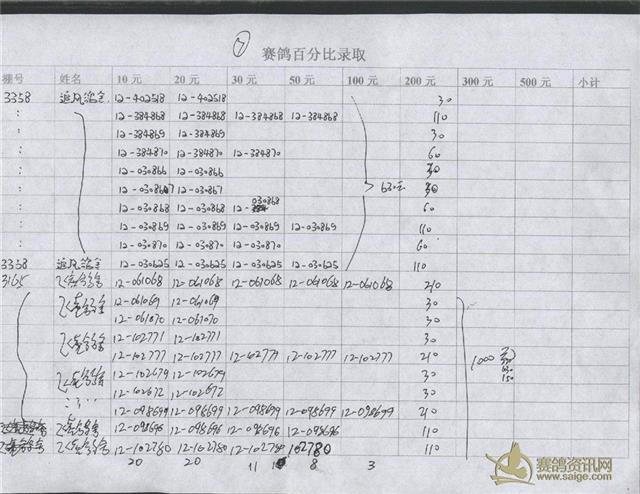 7
赛鸽百分比录取
棚号 姓名 10元 20元 30元 50元 100元 200元 300元 500元 小计
3358 追风鸽舍 12-402518 12-402518 30
: 12-384868 12-384868 12-384868 12-384868 110
: 12-384869 12-384869 30
: 12-384870 12-384870 12-384870 60
: 12-030866 12-030866 30
: 12-030867 12-030867 630元 30
: 12-030868 12-030868 12-030868 60
: 12-030869 12-030869 12-030869 12-030869 110
: 12-030870 12-030870 12-030870 60
3358 追风鸽舍 12-030625 12-030625 12-030625 12-030625 110
3165 12-061068 12-061068 12-061068 12-061068 12-061068 210
12-061069 12-061069 30
12-061070 12-061070 30
12-102771 12-102771 30
12-102777 12-102777 12-102777 12-102777 12-102777 210 1000元
12-102679 12-102679 30 150
12-102672 12-102672 30
12-098699 12-098699 12-098699 12-098699 12-098699 210
12-098696 12-098696 12-098696 12-098696 110
12-102780 12-102780 12-102780 102780 110
20 20 11 8 3
赛鸽资讯网
www.saige.com